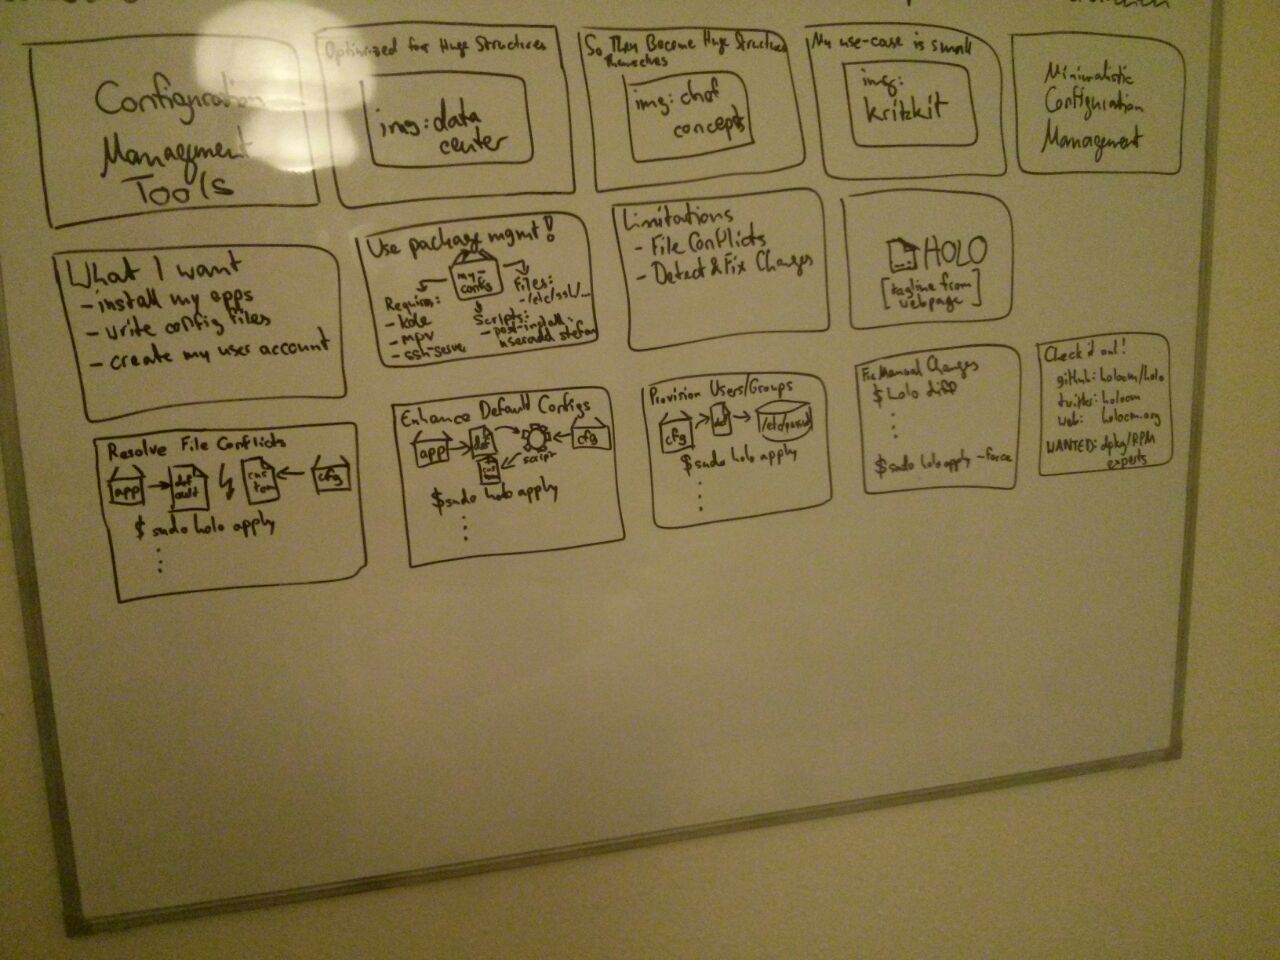 Configuration
Management
Tools
Optimized for Huge Structures
img: data
center
So They Become Huge Structures
Themselves
img: chef
concepts
My use-case is small
img:
kritzkit
Minimalistic
Configuration
Management
What I want
- install my apps
- write config files
- create my user account
Use package mgmt!
my-
config
Requires:
- kde
- mpv
- ssh-server
Scripts:
- post-install:
useradd stefan
Files:
- /etc/ssl/...
Limitations
- File Conflicts
- Detect & Fix Changes
HOLO
[tagline from
webpage]
Resolve File Conflicts
app
def
ault
cus
tom
cfg
$ sudo holo apply
Enhance Default Configs
app
def
script
cfg
$ sudo holo apply
Provision Users/Groups
cfg
def
/etc/passwd
$ sudo holo apply
Fix Manual Changes
$ holo diff
$ sudo holo apply --force
Check it out!
github: holocm/holo
twitter: holocm
web: holocm.org
WANTED: dpkg/RPM
experts